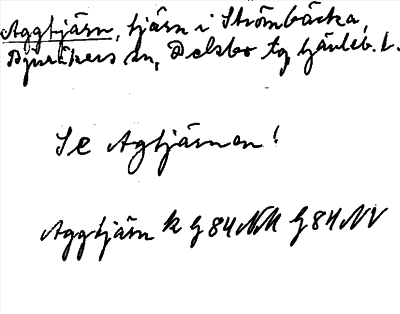 Aggtjärn, tjärn i Strömbäcka,
Bjuråkers sn, Delsbo tg, Gävleb. l.
Se Agtjärnen!
Aggtjärn k G 84 NM G 84 NV